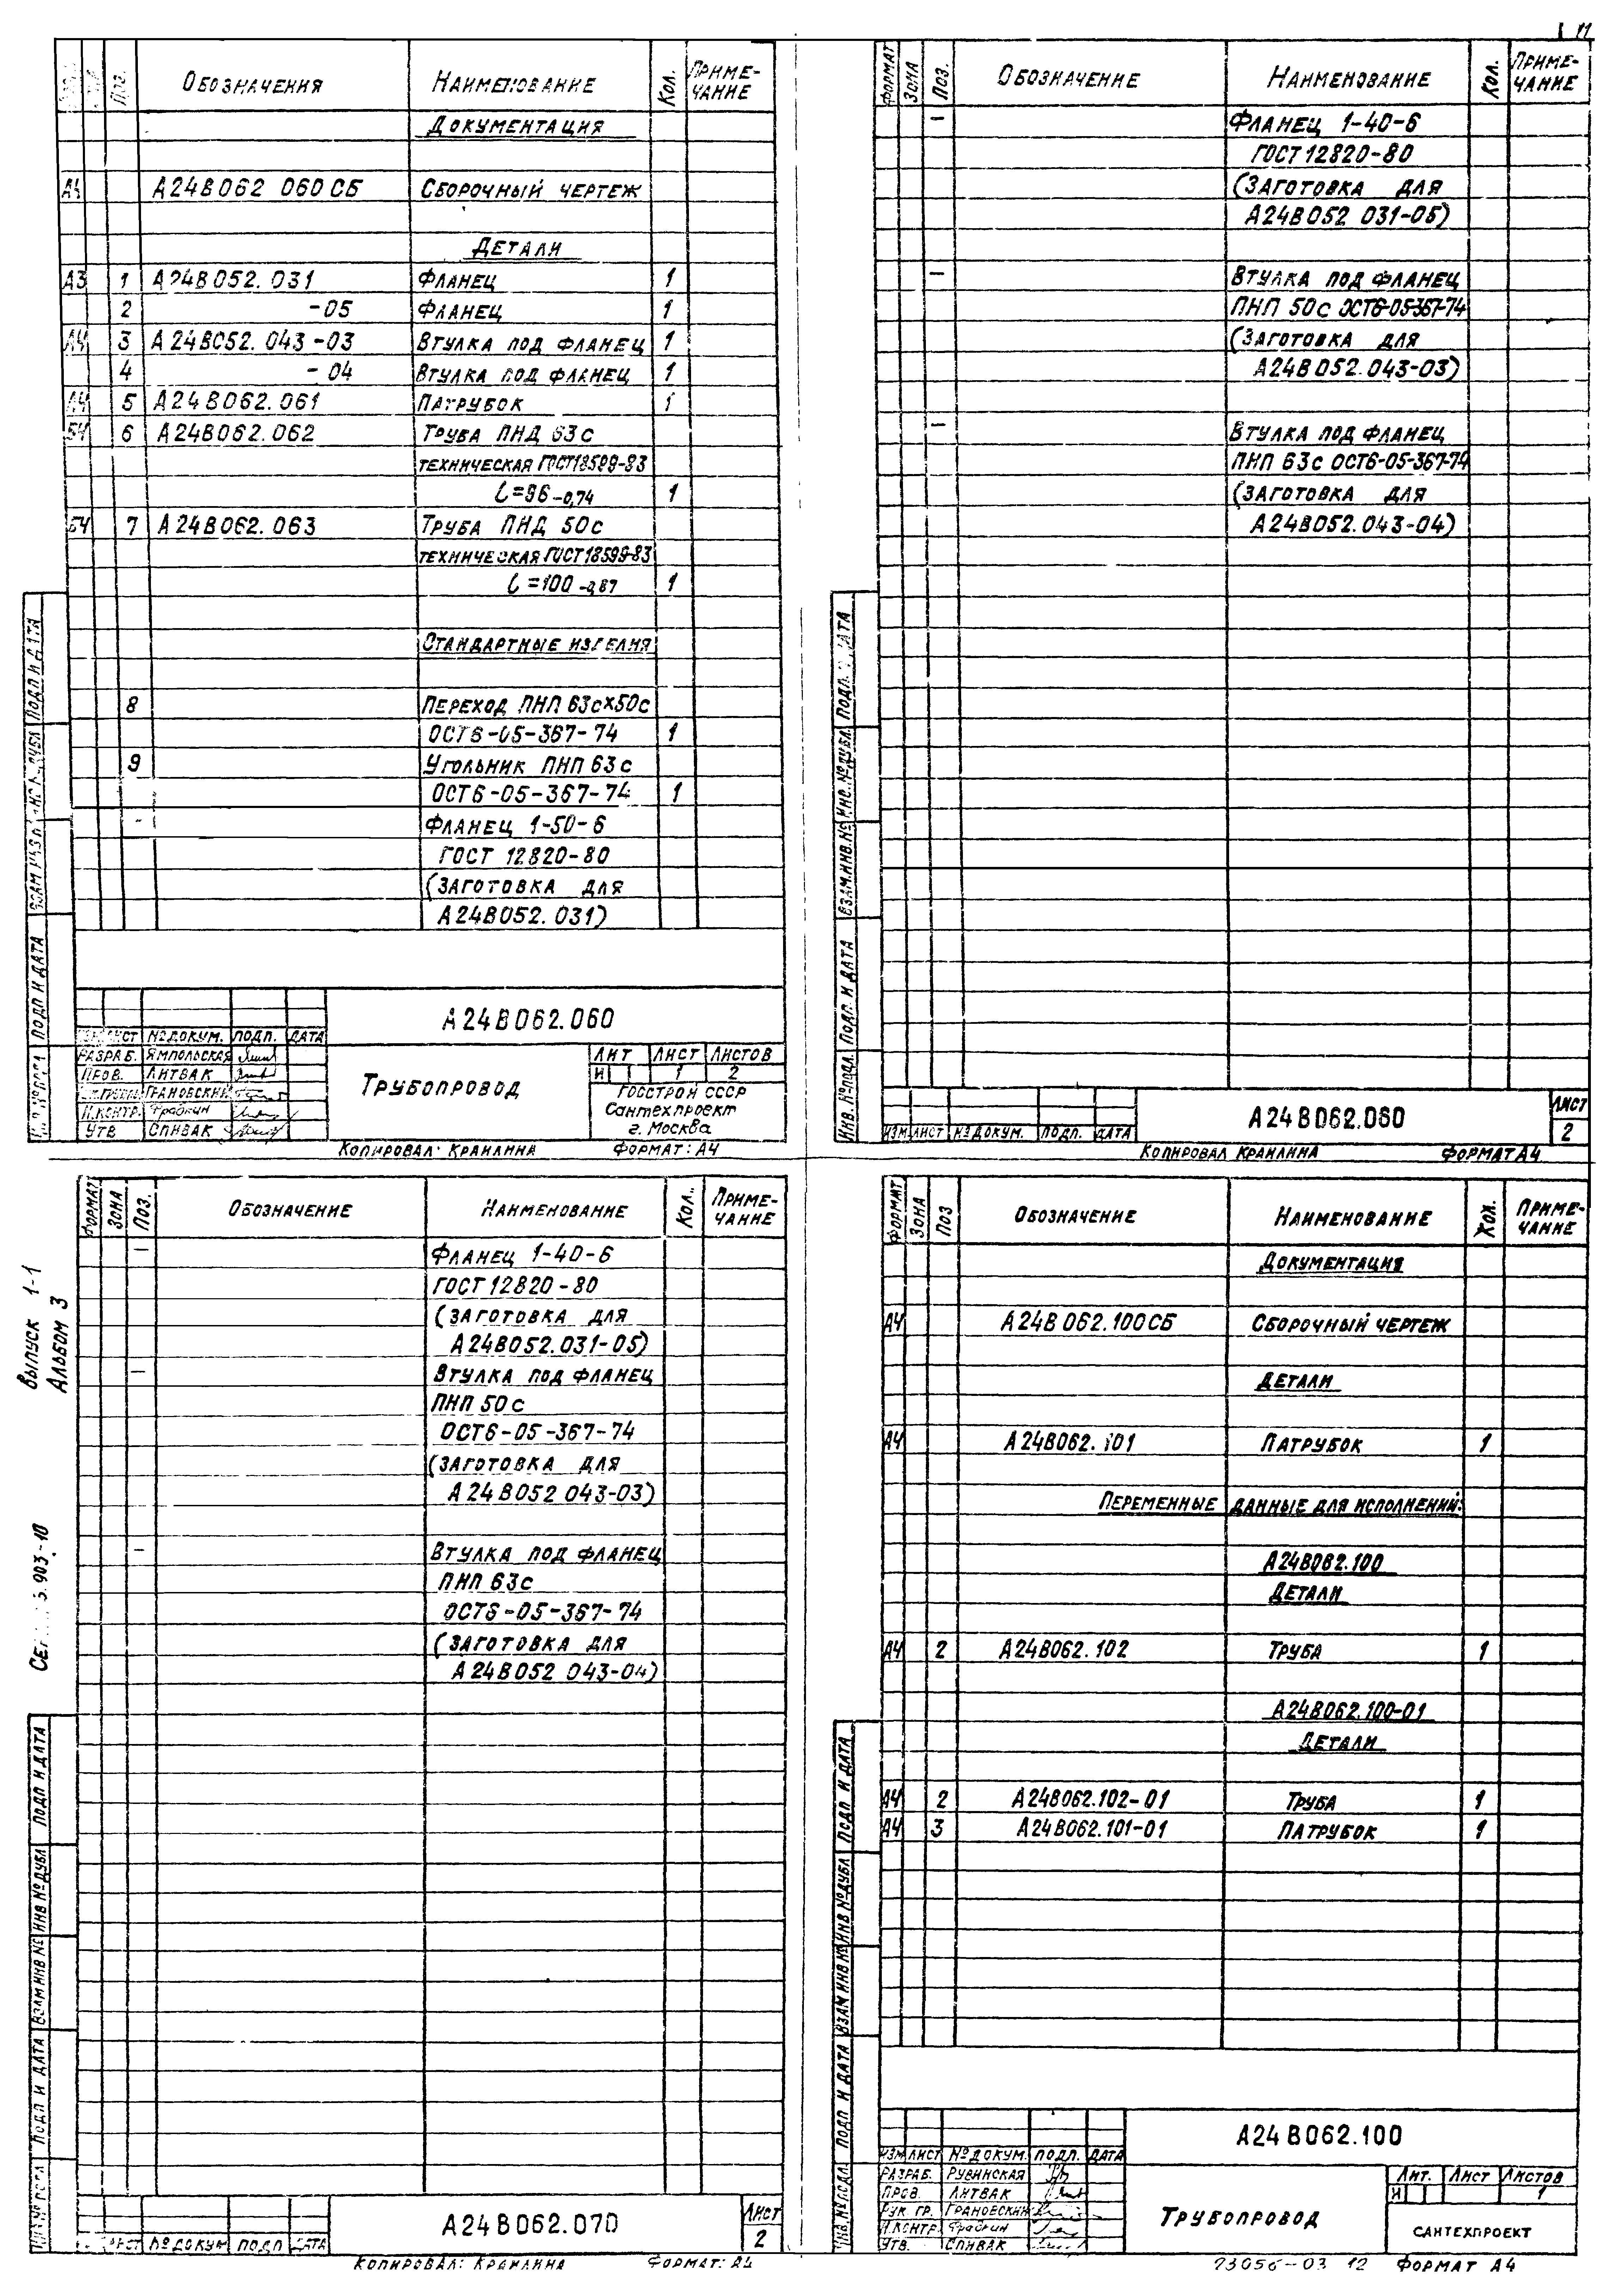 11
ПОЗ. ОБОЗНАЧЕНИЯ НАИМЕНОВАНИЕ КОЛ. ПРИМЕ-
ЧАНИЕ
ДОКУМЕНТАЦИЯ
А4 А24В062 060 СБ СБОРОЧНЫЙ ЧЕРТЕЖ
ДЕТАЛИ
А3 1 А24В052.031 ФЛАНЕЦ 1
2 -05 ФЛАНЕЦ 1
А4 3 А24В052.043-03 ВТУЛКА ПОД ФЛАНЕЦ 1
4 -04 ВТУЛКА ПОД ФЛАНЕЦ 1
А4 5 А24В062.061 ПАТРУБОК 1
БЧ 6 А24В062.062 ТРУБА ПНД 63с
ТЕХНИЧЕСКАЯ ГОСТ18599-83
L=96-0,74 1
БЧ 7 А24В062.063 ТРУБА ПНД 50с
ТЕХНИЧЕСКАЯ ГОСТ18599-83
L=100-0,87 1
СТАНДАРТНЫЕ ИЗДЕЛИЯ
8 ПЕРЕХОД ПНП 63с×50с
ОСТ6-05-367-74 1
9 УГОЛЬНИК ПНП 63с
ОСТ6-05-367-74 1
- ФЛАНЕЦ 1-50-6
ГОСТ 12820-80
(ЗАГОТОВКА ДЛЯ
А24В052.031)
ПОДП И ДАТА
ПОДП И ДАТА
А24В062.060
ЛИСТ № ДОКУМ. ПОДП. ДАТА
РАЗРАБ. ЯМПОЛЬСКАЯ
ПРОВ. ЛИТВАК
ГРАНОВСКИЙ
Н.КОНТР. ФРАДКИН
УТВ СПИВАК
ТРУБОПРОВОД
ЛИТ ЛИСТ ЛИСТОВ
И 1 2
ГОССТРОЙ СССР
САНТЕХПРОЕКТ
г. МОСКВА
КОПИРОВАЛ: КРАИЛИНА ФОРМАТ: А4
ФОРМАТ ЗОНА ПОЗ. ОБОЗНАЧЕНИЕ НАИМЕНОВАНИЕ КОЛ. ПРИМЕ-
ЧАНИЕ
- ФЛАНЕЦ 1-40-6
ГОСТ 12820-80
(ЗАГОТОВКА ДЛЯ
А24В052 031-05)
- ВТУЛКА ПОД ФЛАНЕЦ
ПНП 50с ОСТ6-05-367-74
(ЗАГОТОВКА ДЛЯ
А24В052.043-03)
- ВТУЛКА ПОД ФЛАНЕЦ
ПНП 63с ОСТ6-05-367-74
(ЗАГОТОВКА ДЛЯ
А24В052.043-04)
ИНВ. № ПОДЛ. ПОДП. И ДАТА ВЗАМ.ИНВ.№ ИНВ.№ ДУБЛ. ПОДП. И ДАТА
ИЗМ ЛИСТ № ДОКУМ. ПОДП. ДАТА
А24В062.060
ЛИСТ
2
КОПИРОВАЛ КРАИЛИНА ФОРМАТ А4
ВЫПУСК 1-1
АЛЬБОМ 3
903-10
ФОРМАТ ЗОНА ПОЗ. ОБОЗНАЧЕНИЕ НАИМЕНОВАНИЕ КОЛ. ПРИМЕ-
ЧАНИЕ
- ФЛАНЕЦ 1-40-6
ГОСТ 12820-80
(ЗАГОТОВКА ДЛЯ
А24В052.031-05)
- ВТУЛКА ПОД ФЛАНЕЦ
ПНП 50с
ОСТ6-05-367-74
(ЗАГОТОВКА ДЛЯ
А24В052 043-03)
- ВТУЛКА ПОД ФЛАНЕЦ
ПНП 63с
ОСТ6-05-367-74
(ЗАГОТОВКА ДЛЯ
А24В052 043-04)
ПОДП И ДАТА ВЗАМ ИНВ № ИНВ № ДУБЛ ПОДП И ДАТА
№ ДОКУМ ПОДП ДАТА
А24В062.070
ЛИСТ
2
КОПИРОВАЛ: КРАИЛИНА ФОРМАТ: А4
ФОРМАТ ЗОНА ПОЗ ОБОЗНАЧЕНИЕ НАИМЕНОВАНИЕ КОЛ. ПРИМЕ-
ЧАНИЕ
ДОКУМЕНТАЦИЯ
А4 А24В062.100СБ СБОРОЧНЫЙ ЧЕРТЕЖ
ДЕТАЛИ
А4 А24В062.101 ПАТРУБОК 1
ПЕРЕМЕННЫЕ ДАННЫЕ ДЛЯ ИСПОЛНЕНИЙ:
А24В062.100
ДЕТАЛИ
А4 2 А24В062.102 ТРУБА 1
А24В062.100-01
ДЕТАЛИ
А4 2 А24В062.102-01 ТРУБА 1
А4 3 А24В062.101-01 ПАТРУБОК 1
ИНВ.№ ПОДЛ. ПОДП И ДАТА ВЗАМ ИНВ № ИНВ № ДУБЛ ПОДП И ДАТА
А24В062.100
ИЗМ ЛИСТ № ДОКУМ. ПОДП. ДАТА
РАЗРАБ. РУВИНСКАЯ
ПРОВ. ЛИТВАК
РУК. ГР. ГРАНОВСКИЙ
Н.КОНТР. ФРАДКИН
УТВ. СПИВАК
ТРУБОПРОВОД
ЛИТ. ЛИСТ ЛИСТОВ
И 1
САНТЕХПРОЕКТ
23056-03 12 ФОРМАТ А4